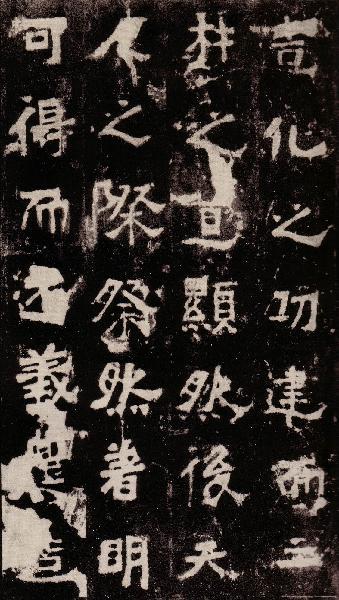 化之功建而三
材之道顯然後天
人之際粲然著明
可得而義